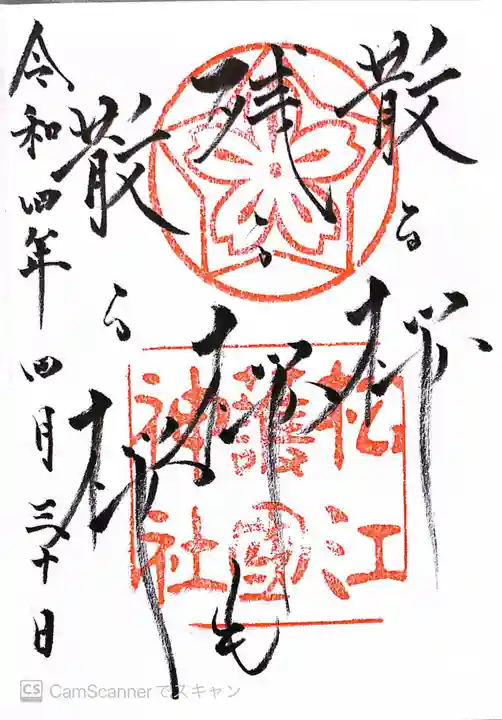 散る桜
残る桜も
散る桜
令和四年四月三十日
松江
護國
神社
CS CamScannerでスキャン